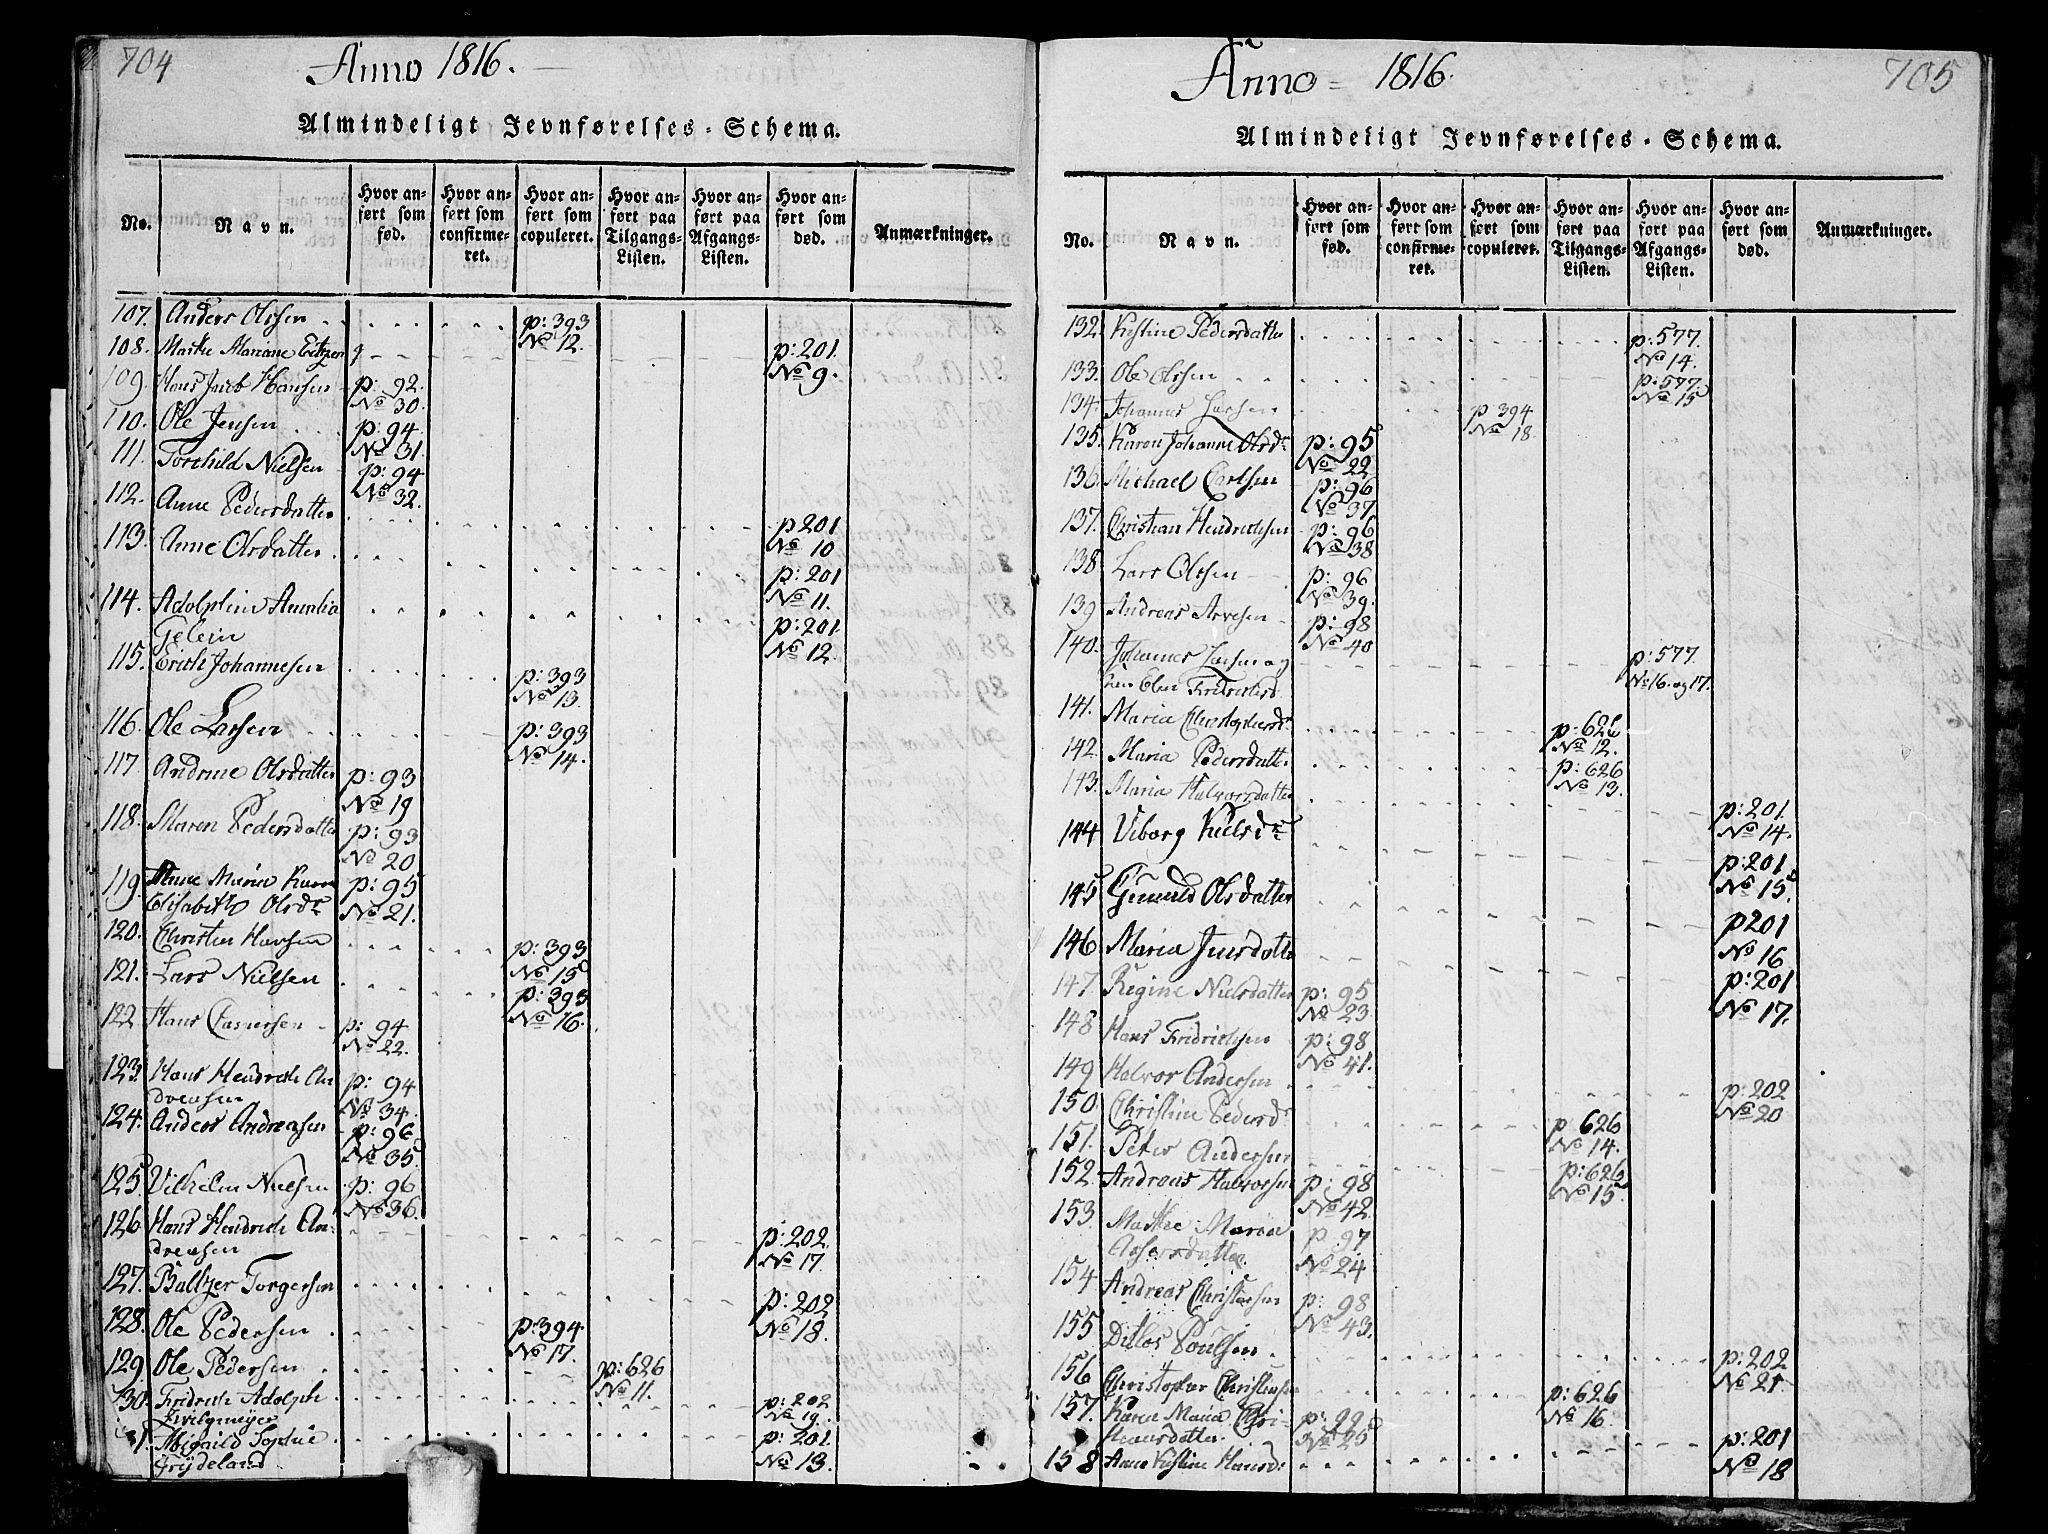 704
Anno 1816.
Almindeligt Jevnførelses-Schema.
No.
Navn.
Hvor anført som fød.
Hvor anført som confirmeret.
Hvor anført som copuleret.
Hvor anført paa Tilgangs-Listen.
Hvor anført paa Afgangs-Listen.
Hvor anført som død.
Anmærkninger.
107. Anders Olssen p: 393 No 12.
108. Marthe Mariane p: 201. No 9.
109. Hans Jacob Hansen p: 92. No 30.
110. Ole Jensen p: 94. No 31.
111. Torchild Nielsen p: 94 No 32.
112. Anne Pedersdatter p 201 No 10
113. Anne Olsdatter p: 201 No 11.
114. Adolphine Amalia
p: 201. No 12.
115. Erich Johannesen p: 393 No 13.
116. Ole Larsen p: 393 No 14.
117 Andrine Olsdatter p: 93 No 19
118. Maren Pedersdatter p: 93 No 20
119. Anne Maria Karen p: 95
Elisabeth Olsdr No 21.
120. Christen Hansen p: 393 No 15
121. Lars Nielsen p: 393 No 16.
122 Hans Caspersen p: 94 No 22.
123. Hans Hendrich An
dreasen p: 94 No 34.
124. Anders Andreasen p: 96 No 35.
125. Vilhelm Nielsen p: 96 No 36.
126 Hans Hendrich An-
dreasen p: 202. No 17.
127. Baltzer Torgersen p: 202 No 18.
128. Ole Pedersen p: 394. No 17.
129. Ole Pedersen p: 626 No 11.
30. Fridrich Adolph
p: 202 No 19.
31. Abigaild Sophie p: 201. No 13.
705
Anno 1816.
Almindeligt Jevnførelses-Schema.
No.
Navn.
Hvor anført som fød.
Hvor anført som confirmeret.
Hvor anført som copuleret.
Hvor anført paa Tilgangs-Listen.
Hvor anført paa Afgangs-Listen.
Hvor anført som død.
Anmærkninger.
132. Kistine Pedersdatter p: 577. No 14.
133. Ole Olssen p: 577. No 15
134. Johannes Larsen p 394 No 18.
135. Karen Johanne Olsdr p: 95 No 22
136. Michael Carlsen p: 96 No 37.
137. Christian Hendrichsen p: 96 No 38
138 Lars Olssen p: 96 No 39.
139 Andreas Arvesen p: 98 No 40
140. Johannes Larsen og
Fridrichsd p: 577. No 16. og 17.
141. Maria Christophersdr p: 626 No 12.
142. Maria Pedersdatter p: 626 No 13.
143. Maria Halvorsdatter p: 201. No 14.
144 Viborg Kielsdr p: 201 No 15.
145 Gunnild Olsdatter p 201 No 16
146 Maria Jensdatter p: 201 No 17.
147. Regine Nielsdatter p: 95 No 23
148 Hans Fridrichsen p: 98 No 41.
149 Halvor Andersen p: 202 No 20
150. Christine Pedersdr p 626 No 14.
151. Peter Andersen p: 626 No 15
152. Andreas Halvorsen p: 98 No 42.
153. Marthe Maria
Assersdatter p 97 No 24
154 Andreas Christensen p: 98 No 43.
155 Ditlos Poulsen p: 202 No 21
156 Christopher Christensen p: 626 No 16.
157. Karen Maria Chri-
stensdatter p: No 25
158 Anne Kistine Hansd: p: 201 No 18